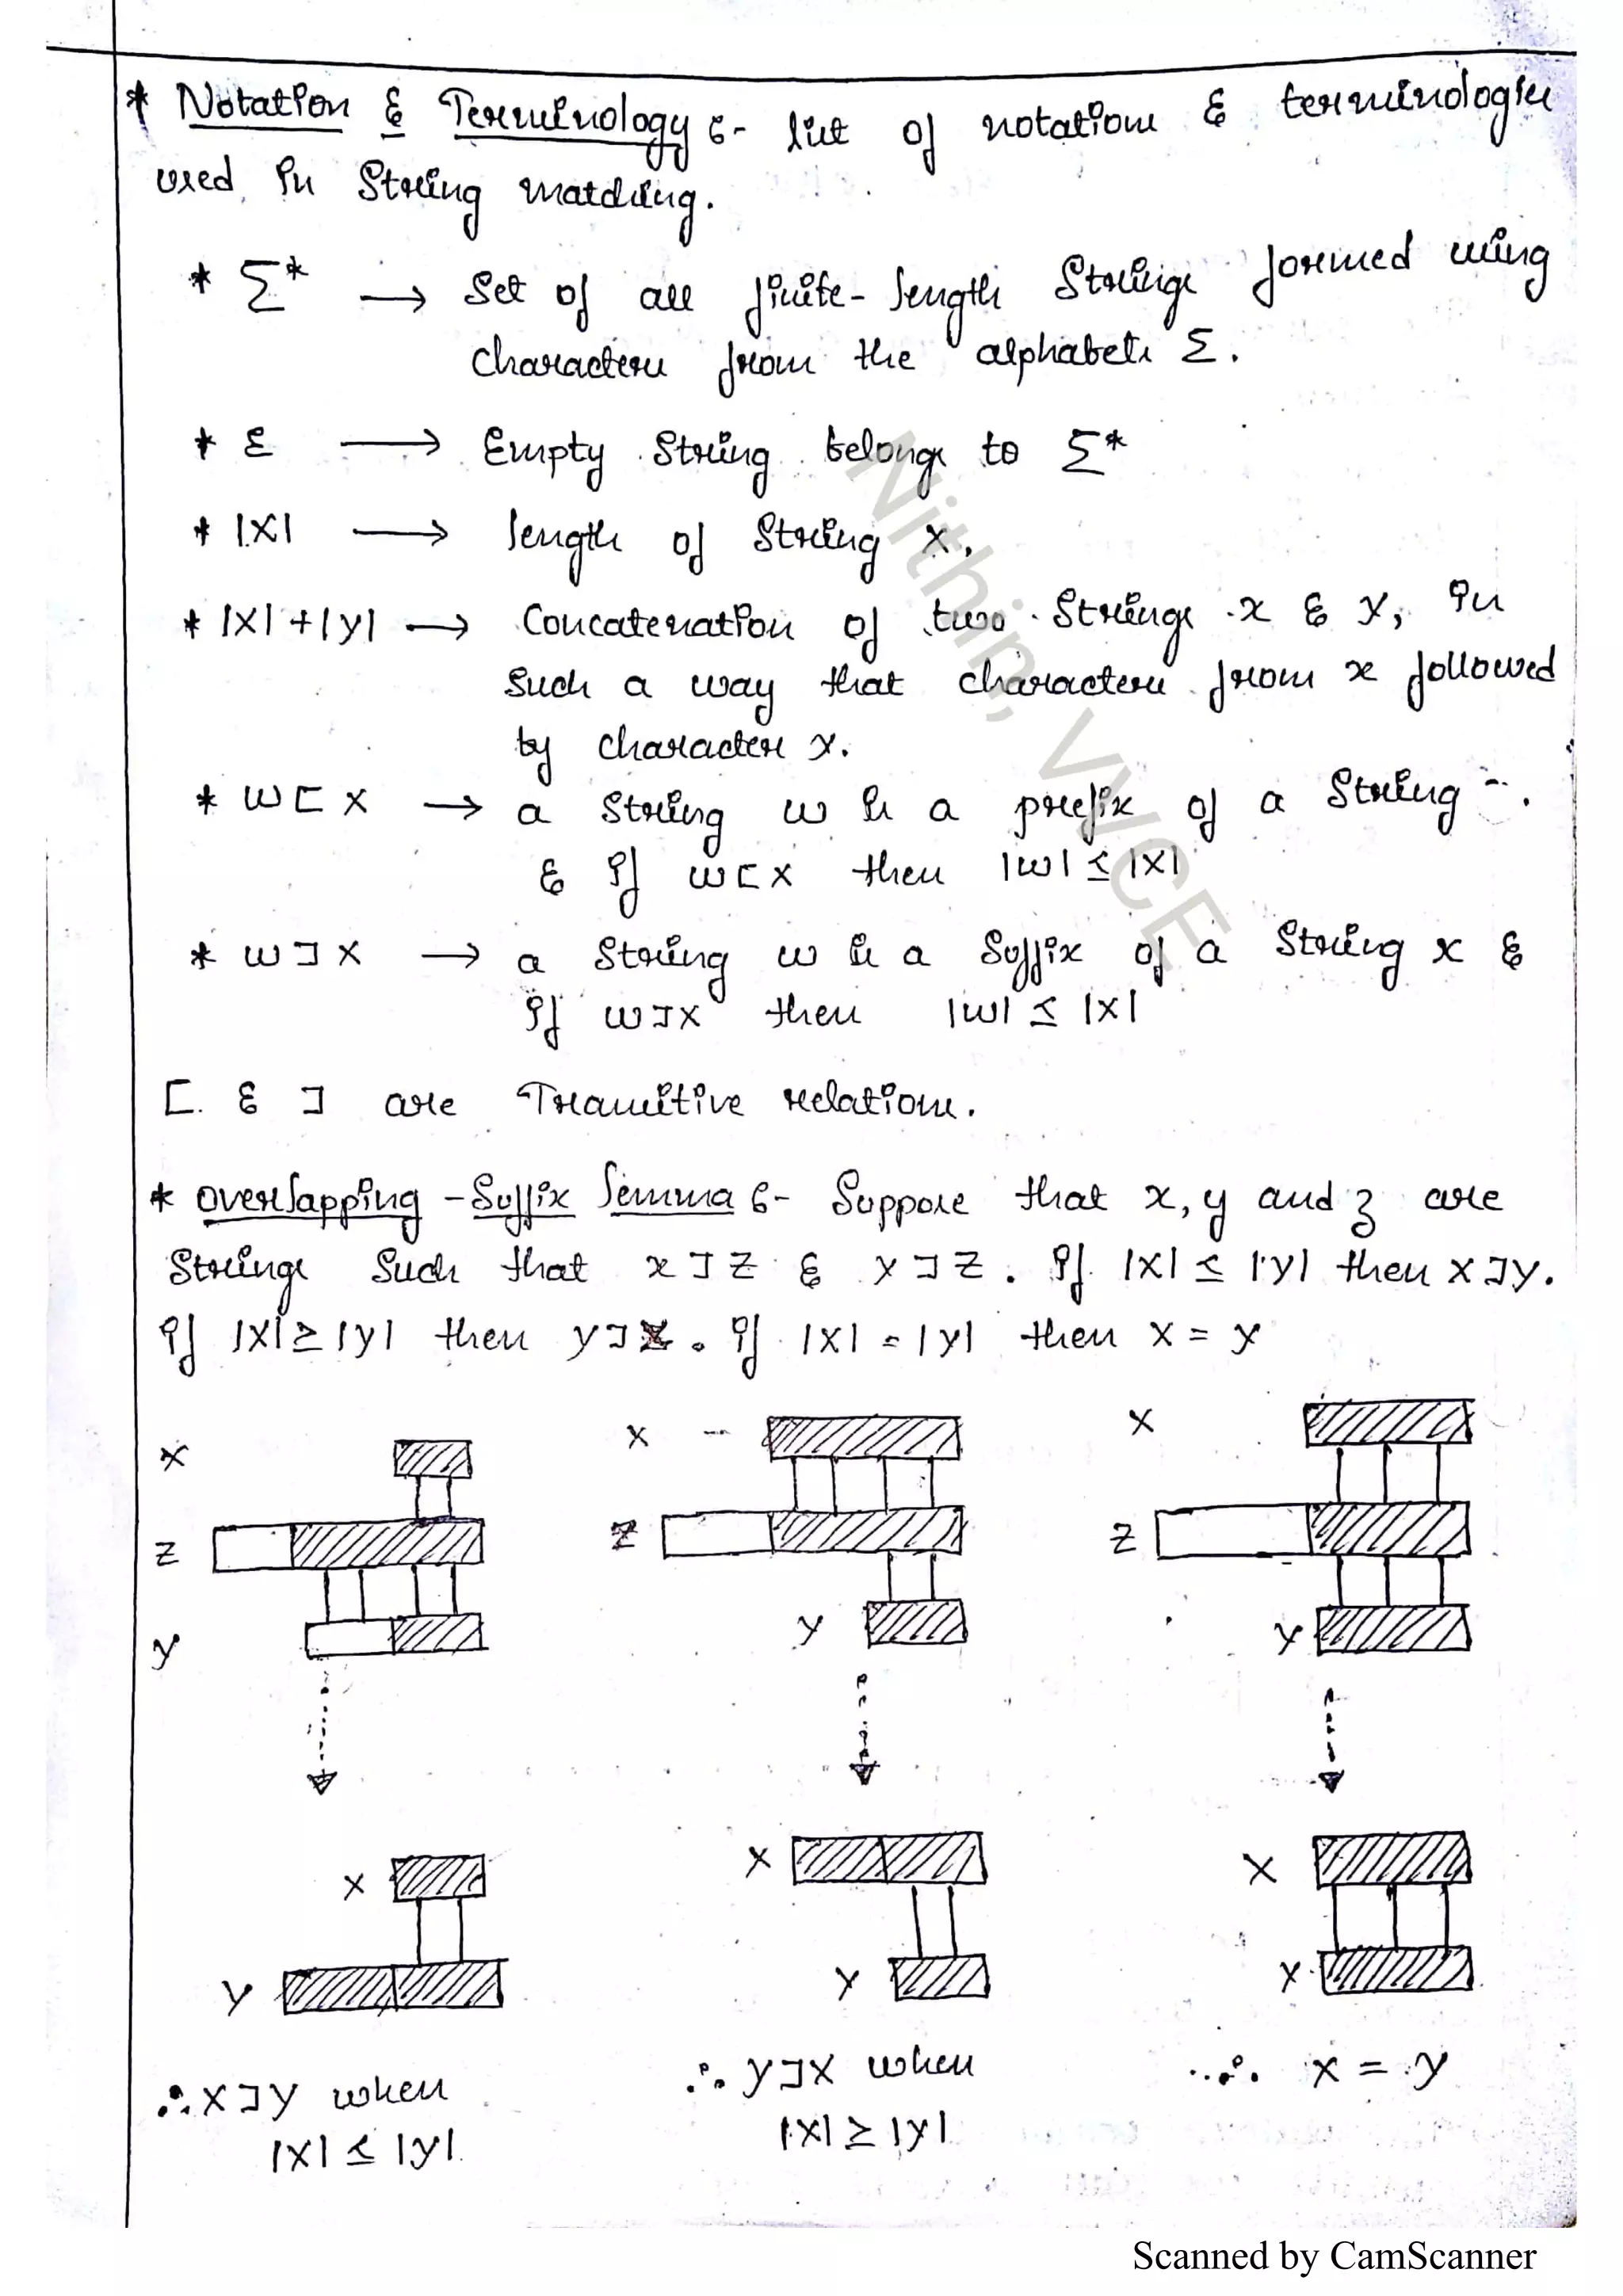 * Notation & Terminology :- list of notations & terminologies
used in String matching.
* Σ* → Set of all finite-length Strings formed using
characters from the alphabets Σ.
* ε → Empty String belongs to Σ*
* |X| → length of String X.
* |X|+|y| → Concatenation of two Strings x & y, in
such a way that characters from x followed
by character y.
* w⊏x → a String w is a prefix of a String
& if w⊏x then |w| ≤ |x|
* w⊐x → a String w is a Suffix of a String x &
if w⊐x then |w| ≤ |x|
⊏ & ⊐ are Transitive relations.
* Overlapping-Suffix lemma :- Suppose that x, y and z are
Strings Such that x⊐z & y⊐z. If |x| ≤ |y| then x⊐y.
if |x| ≥ |y| then y⊐x. if |x| = |y| then x = y
x x x
z z z
y y y
x x x
y y y
∴ x⊐y when ∴ y⊐x when ∴ x = y
|x| ≤ |y| |x| ≥ |y|
Nithin, VVCE
Scanned by CamScanner